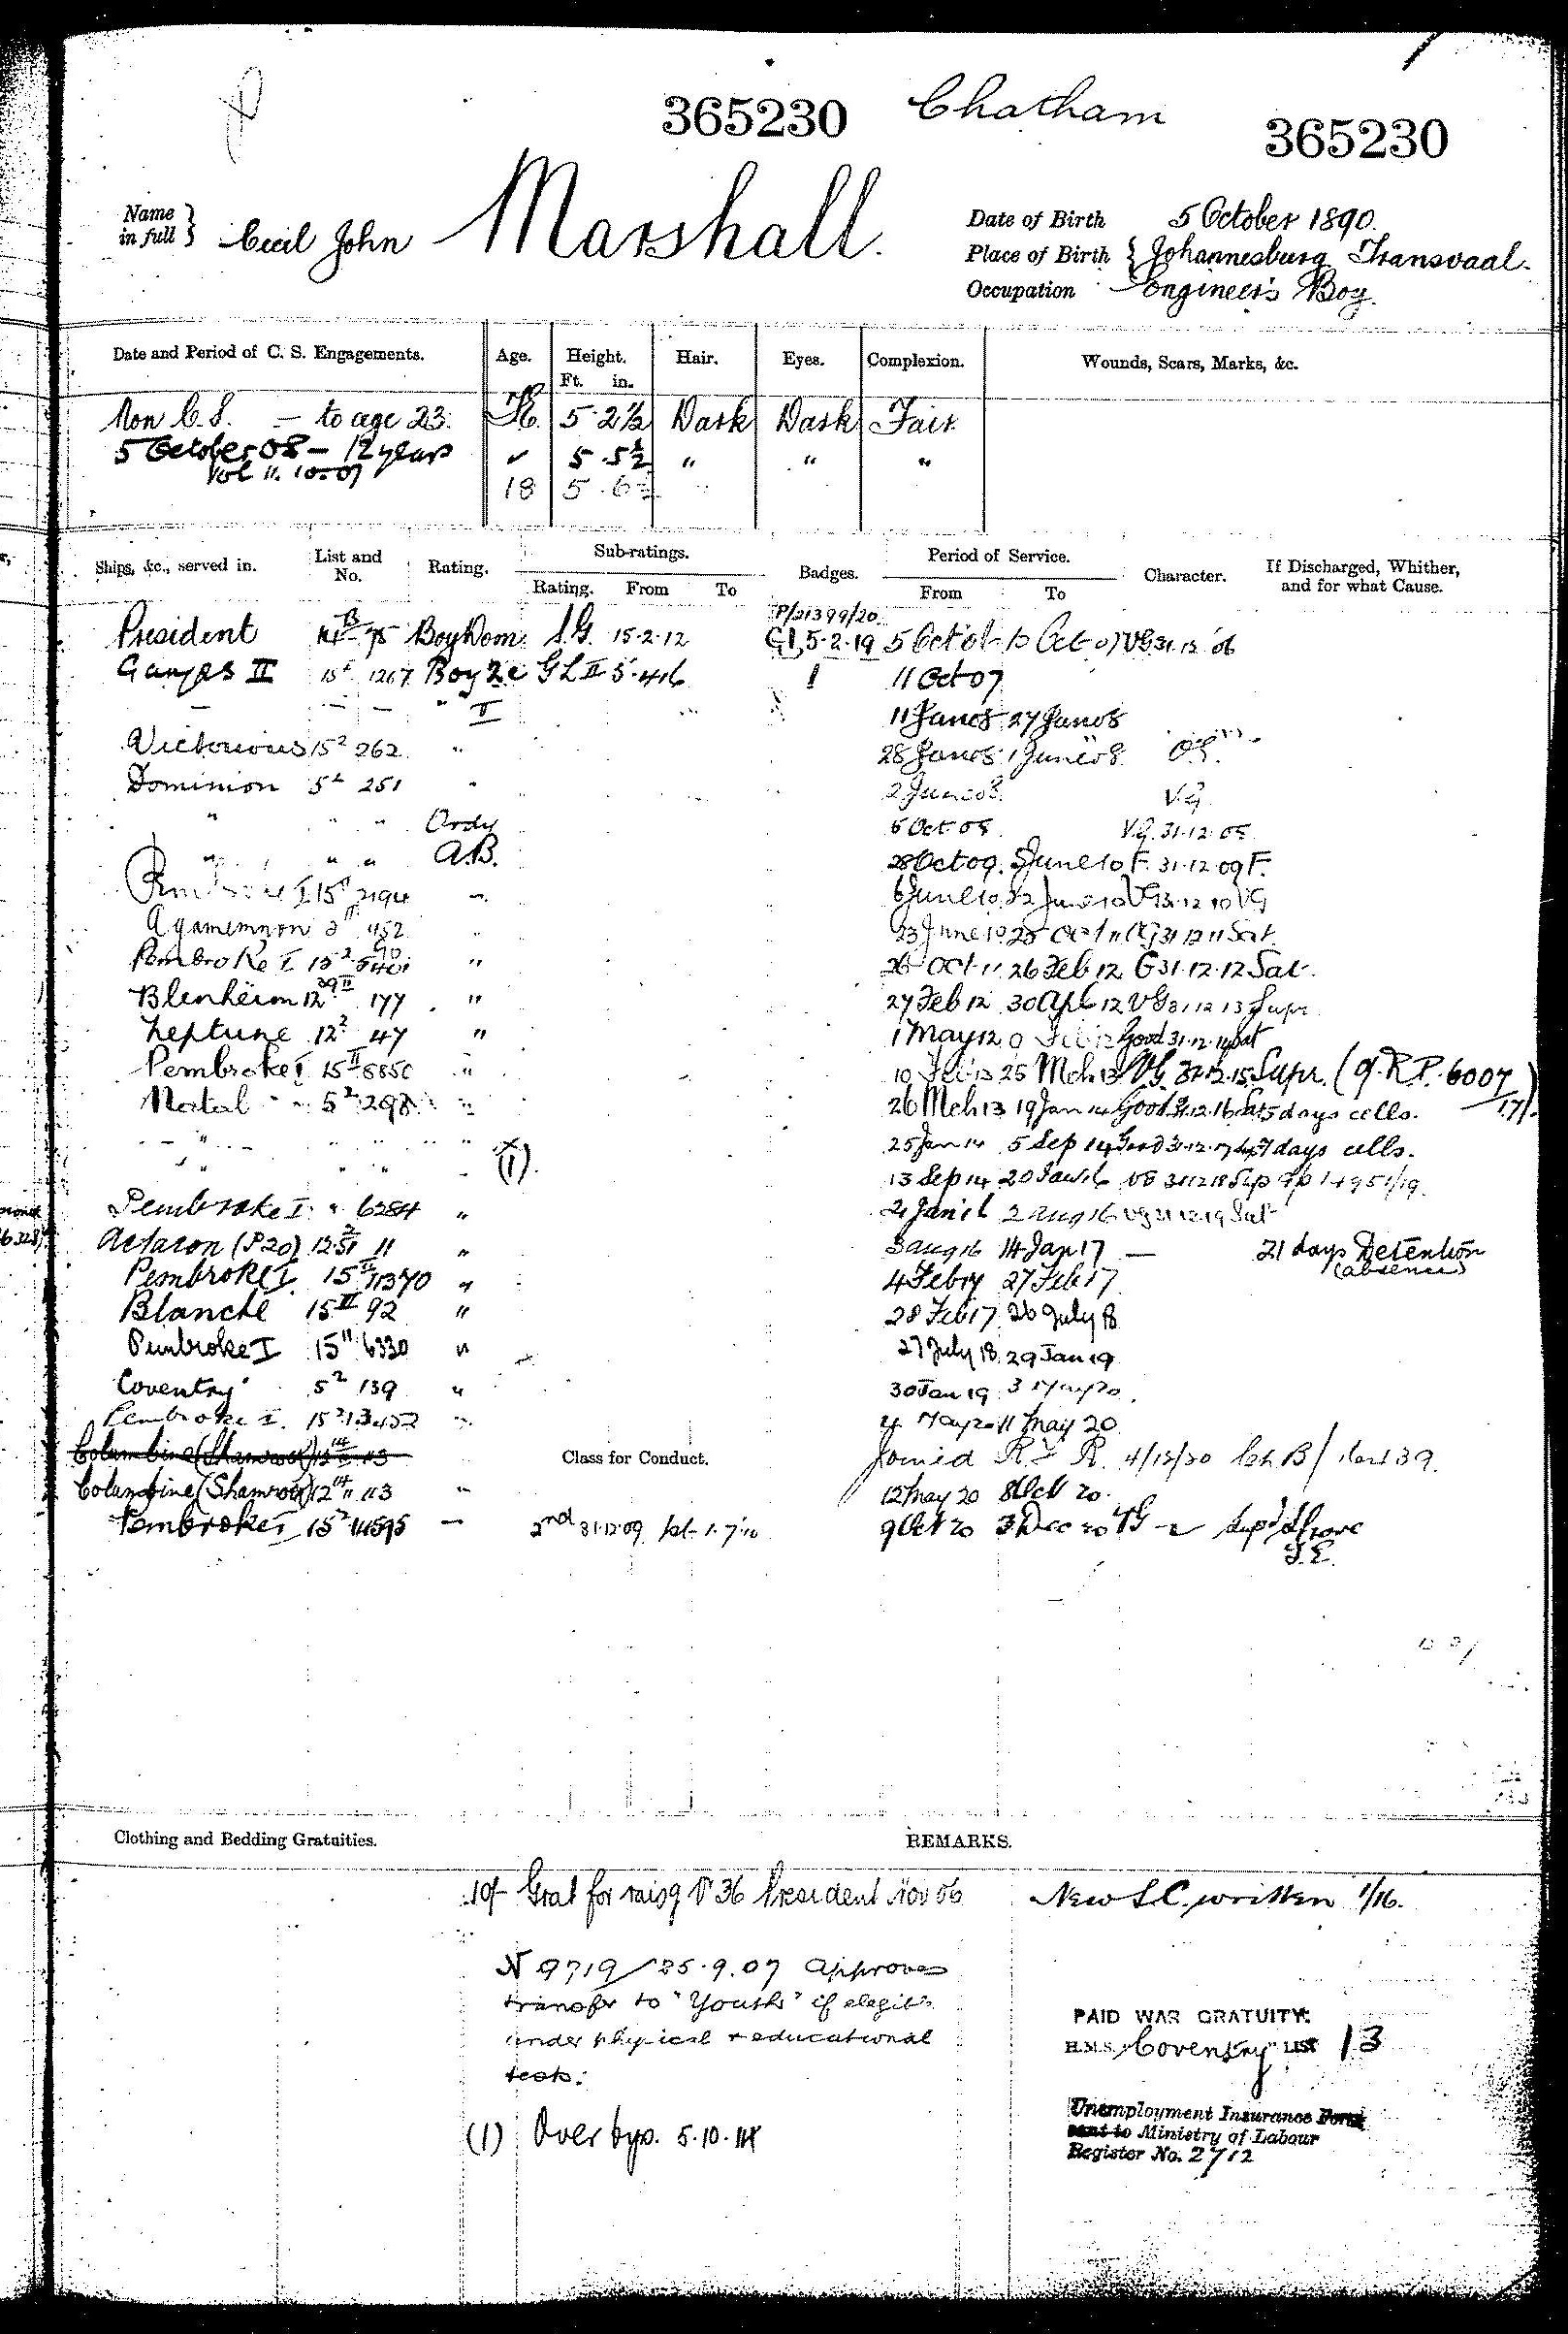 365230 Chatham 365230
Name in full } Cecil John Marshall.
Date of Birth 5 October 1890.
Place of Birth { Johannesburg Transvaal.
Occupation Engineer's Boy.
Date and Period of C. S. Engagements. Age. Height. Ft. in. Hair. Eyes. Complexion. Wounds, Scars, Marks, &c.
Non C.S. — to age 23. 5 · 2½ Dark Dark Fair
5 October 08 — 12 years 5 · 5½ " " "
Vol 11. 10. 07
18 5 · 6
Ships, &c., served in. List and No. Rating. Sub-ratings. Rating. From To Badges. Period of Service. From To Character. If Discharged, Whither, and for what Cause.
P/21399/20
President 75 Boy Dom. S.G. 15·2·12 5·2·19 5 Oct 10 Oct 07 VG 31·12 06
Ganges II 15 1267 Boy 2c GL II 5·4·16 1 11 Oct 07
" II 11 Jan 08 27 Jan 08
Victorious 15² 262 " 28 Jan 08 1 June 08
Dominion 5² 251 " 2 June 08 V.G
" " " Ordy 5 Oct 08 V.G. 31·12·08
" " " A.B. 28 Oct 09 5 June 10 F. 31·12·09 F.
I 15 2194 6 June 10 22 June 10 VG 31·12 10 VG
Agamemnon 452 " 23 June 10 25 Oct 11 31 12 11 Sat.
Pembroke I 15² " 26 Oct 11 26 Feb 12 G 31·12·12 Sat.
Blenheim 12 177 " 27 Feb 12 30 Apl 12 VG 31 12 13 Supr
Neptune 12² 47 " 1 May 12 Good 31·12·14 Sat
Pembroke I 15 II " 10 13 25 Mch 13 VG 31·12·15 Supr. (9.R.P. 6007/17)
Natal 5² 298 " 26 Mch 13 19 Jan 14 Good 31·12·16 Sat 5 days cells.
" " " " 25 Jan 14 5 Sep 14 Good 31·12·17 7 days cells.
" " " (1) 13 Sep 14 20 Jan 16 VG 31 12 18 Sup
Pembroke I " 6284 " 21 Jan 16 2 Aug 16 VG 31 12 19 Sat
Actaeon (P20) 11 " 3 Aug 16 14 Jan 17 — 21 days Detention
(absence)
Pembroke I 15 II 11370 " 4 Feb 17 27 Feb 17
Blanche 15 III 92 " 28 Feb 17 26 July 18
Pembroke I 15 II 6330 " 27 July 18 29 Jan 19
Coventry 5² 139 " 30 Jan 19 3 May 20
Pembroke I. 15² " 4 May 20 11 May 20
Columbine (Shamrock) 113 Class for Conduct. Joined R.F.R. 4/12/20 Ch B/
Columbine (Shamrock) 12 113 " 12 May 20 8 Oct 20.
Pembroke I 15² 14595 — 2nd 31·12·09 1st 1·7·10 9 Oct 20 3 Dec 20 VG Supd Shore
S.E.
Clothing and Bedding Gratuities. REMARKS.
10/- Grat for raisg P 36 President Nov 06 New S.C. written 1/16.
N 9719/25.9.07 Approves
transfer to "Youths" if eligib
under physical & educational
tests.
PAID WAR GRATUITY.
H.M.S. "Coventry" LIST 13
Unemployment Insurance Form
sent to Ministry of Labour
Register No. 2712
(1) Over 5.10.14